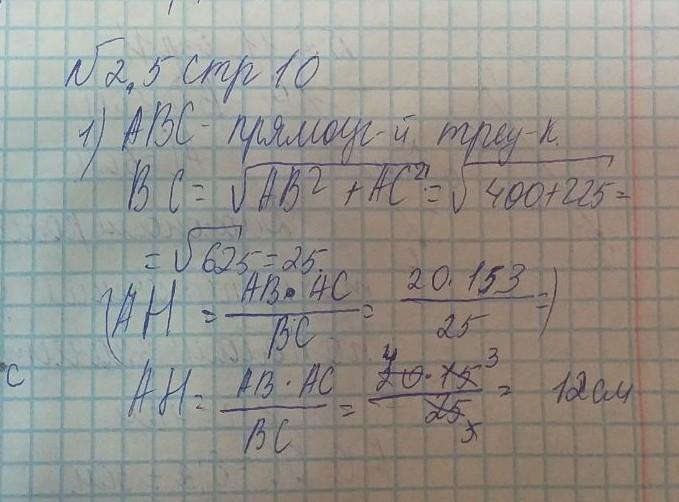 № 2,5 стр 10
1) ABC - прямоуг-й треу-к.
BC = √AB² + AC² = √400+225 =
= √625 = 25.
(AH = AB · AC / BC = 20 · 153 / 25 =)
с
AH = AB · AC / BC = 4 20 · 15 3 / 25 5 = 12 см